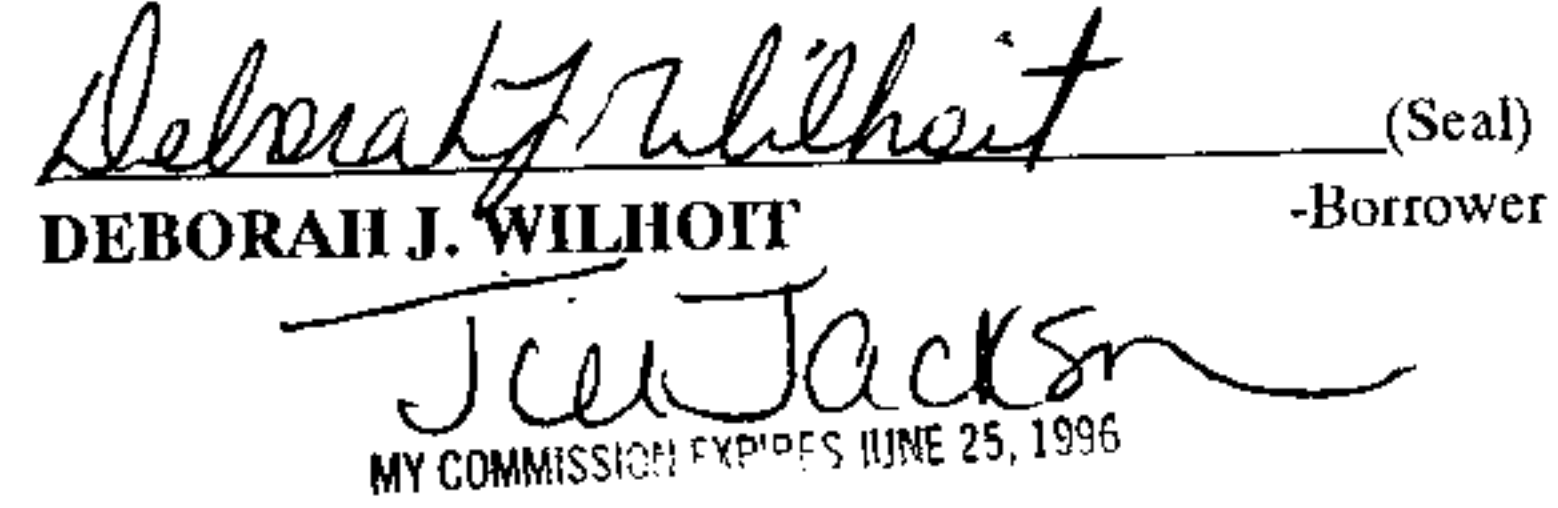 Deborah J Wilhoit (Seal)
DEBORAH J. WILHOIT -Borrower
Jill Jackson
MY COMMISSION EXPIRES JUNE 25, 1996